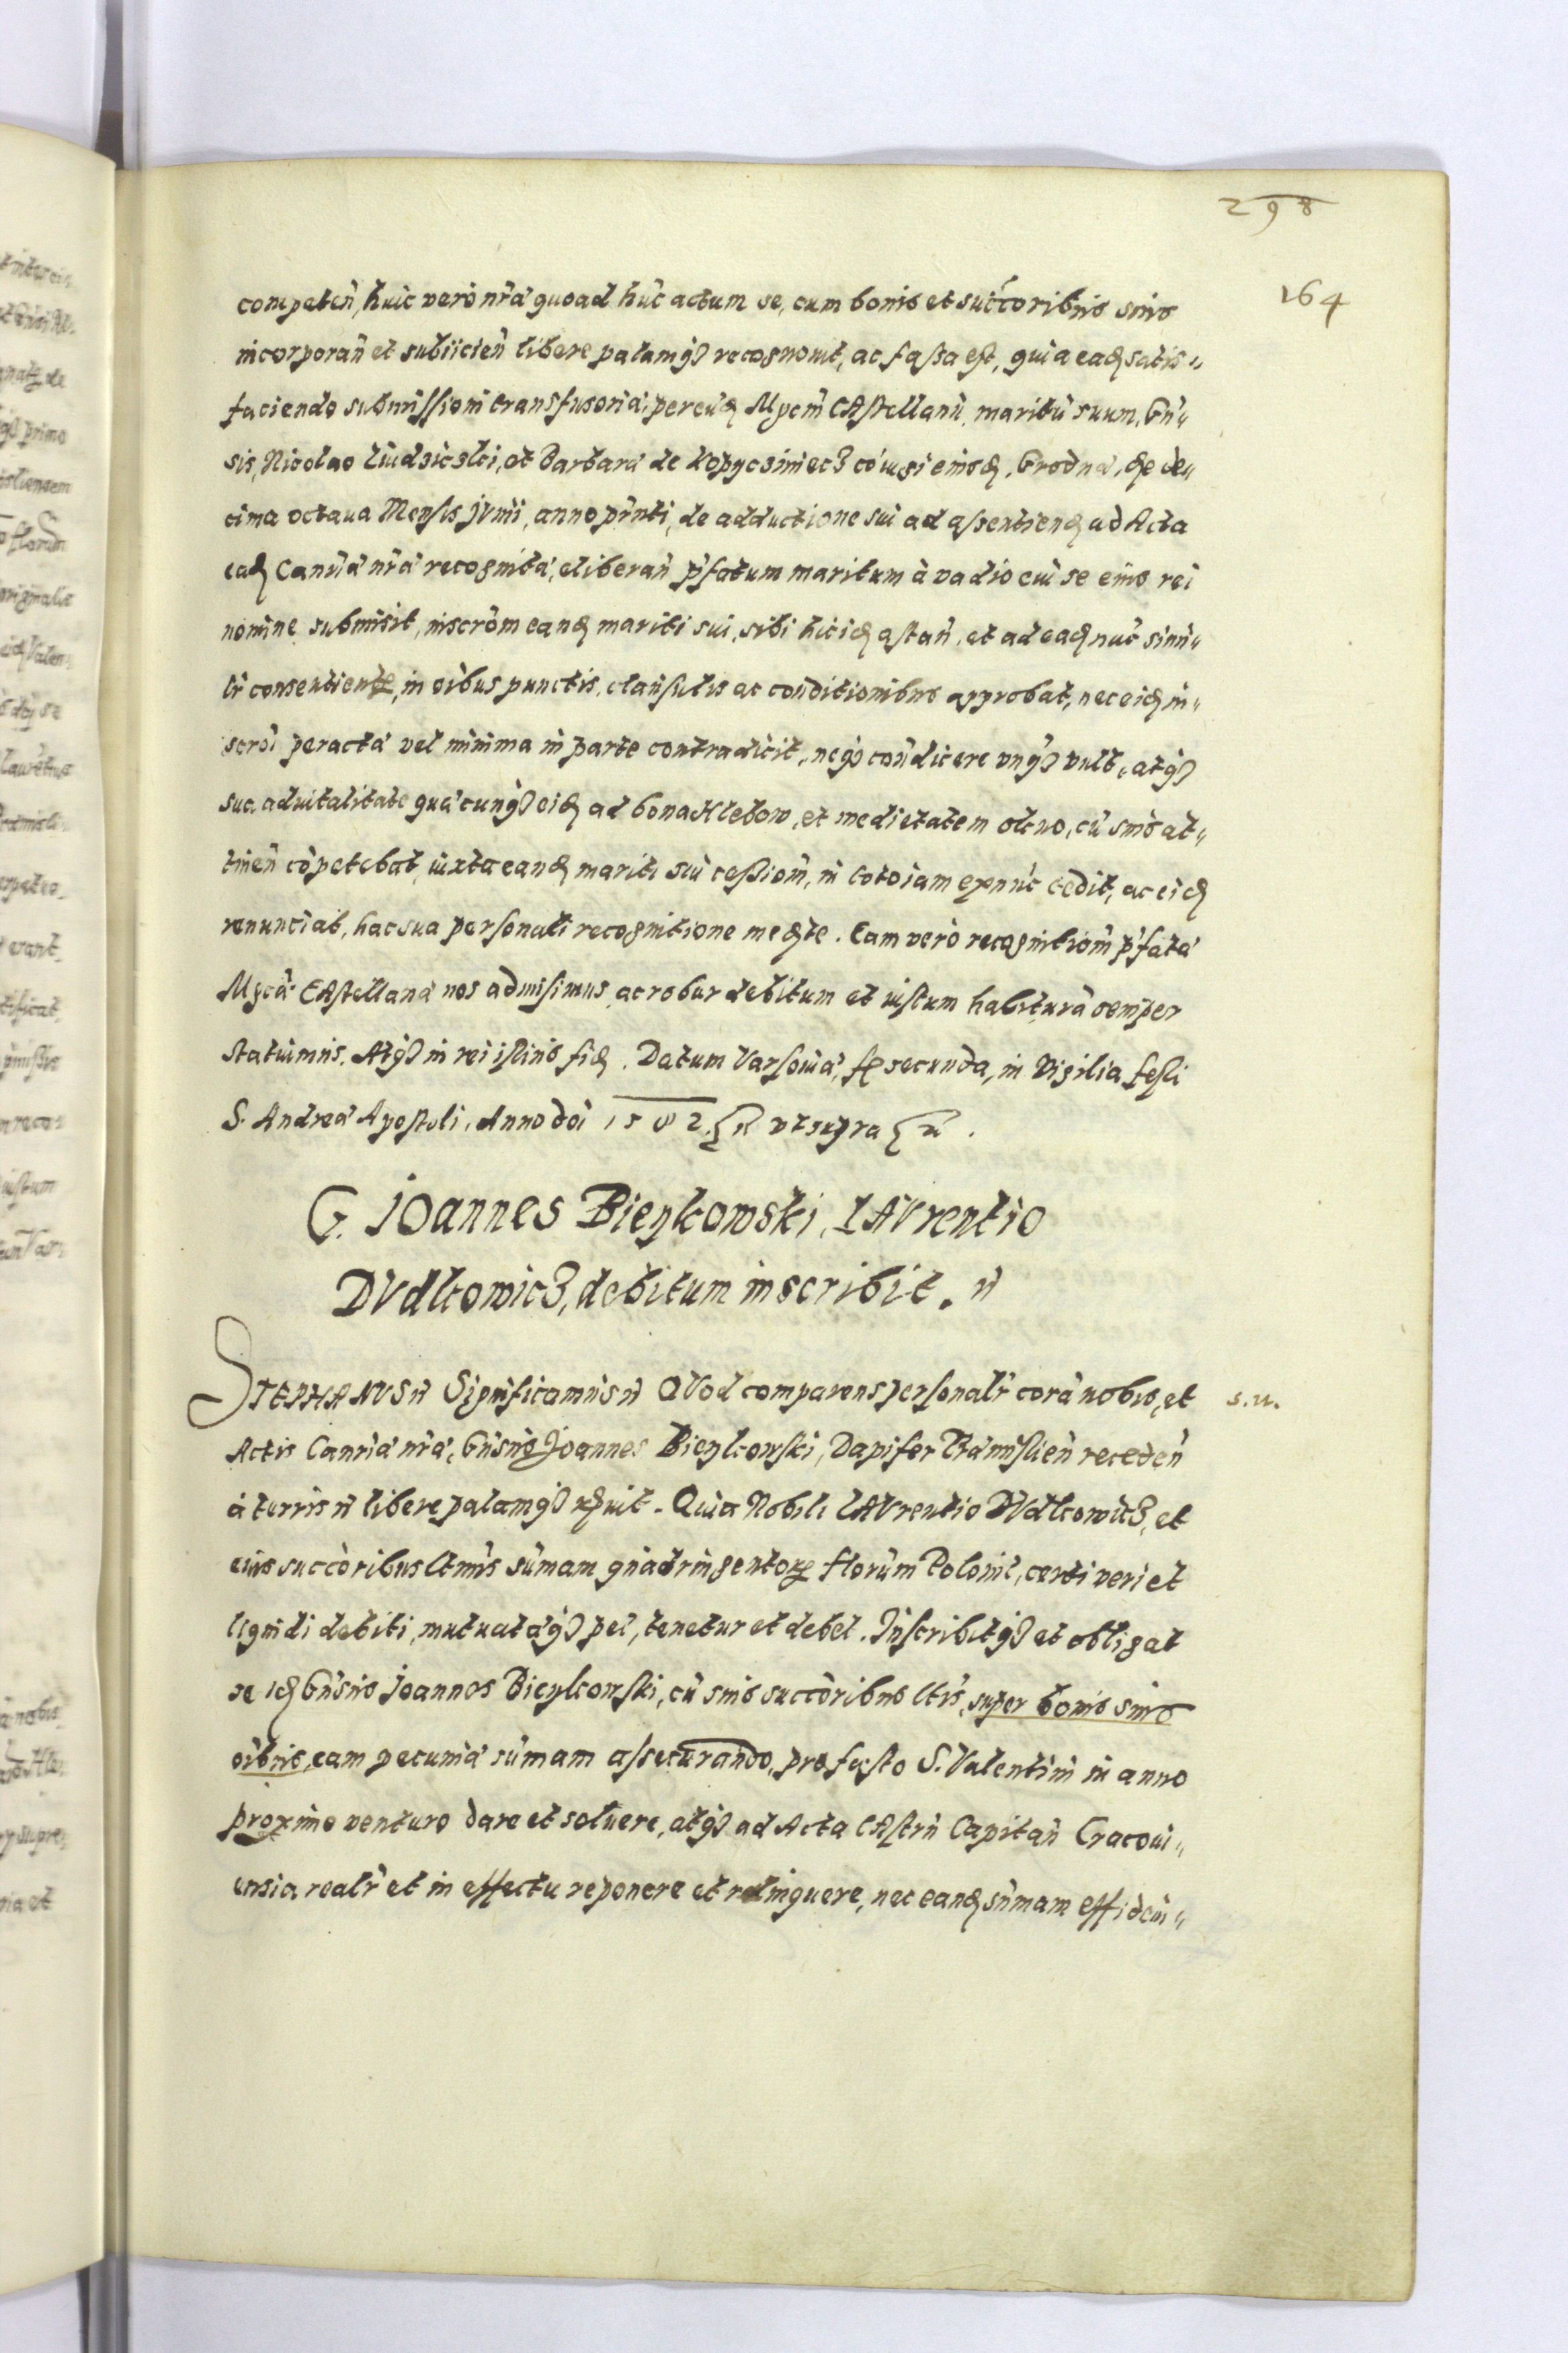 298
164
competeñ, huic vero nrã quoad hũc actum se, cum bonis et succoribus suis
incorporañ et subiicieñ libere palamq3 recognouit, ac fassa est, quia eadẽ satis„
faciendo submissioni transfusoriæ, per eũdẽ Mgcm̃ CAstellanũ, maritũ suum, Gn̄„
sis, Nicolao et Barbaræ de Kopycziniecz cõiugi eiusdẽ, Grodnæ, die de„
cima octaua Mensis jvnii, anno pñti, de adductione sui ad assentiendẽ ad Acta
eadẽ Canriæ nrã recognitæ, eliberañ p̃fatum maritum à vadio cui se eius rei
nomine submisit, inscrõm eandẽ mariti sui, sibi hic idẽ astañ, et ad eadẽ nũc simi„
lr̃ consentient, in oĩbus punctis, clausulis ac conditionibus approbat, nec eidẽ in„
scrõi peractæ vel minima in parte contradicit, neq3 cõñdicere vnq3 vult, atq3
sua aduitalitate quæcunq3 eidẽ ad bona Hlebow, et medietatem olĕno, cũ suis at„
tineñ cõpetebat, iuxta eandẽ mariti sui cessiõm̃, in toto iam ex nũc cedit, ac eidẽ
renunciat, hac sua personali recognitione mediãte. Eam verò recognitiõm̃ p̃fatæ
Mgcæ CAstellanæ nos admisimus, ac robur debitum et iustum habiturã semper
statuimus. Atq3 in rei istius fidẽ. Datum Varsouiæ, fẽ secunda, in Vigilia festi
S. Andreæ Apostoli, Anno dõi 1582. vt supra
G. JOannes Bieykowski, LAVrentio
DVdkowicz, debitum inscribit. „
STEPHANVS „ Significamus „ QVod comparens personalr̃ corã nobis, et
s. n.
Actis Canriæ nrã, Gn̄sus Joannes Bieykowski, Dapifer Præmislieñ recedeñ
à terris „ libere palamq3 rẽcuit. Quia Nobili LAVrentio DVdkowicz, et
eius succõribus ltmis sũmam quadringentorum florũm Polonic̃, certi veri et
liquidi debiti, mutuatæq3 pec̃, tenetur et debet. Inscribitq3 et obligat
se idẽ Gn̄sus joannes Bieykowski, cũ suis succõribus ltis, super bonis suis
oĩbus, eam pecuniæ sũmam assecurando, pro festo S. Valentini in anno
proximo venturo dare et soluere, atq3 ad Acta CAstrñ Capitañ Cracoui„
ensia realr̃ et in effectu reponere et relinquere, nec eandẽ sũmam effi deui„